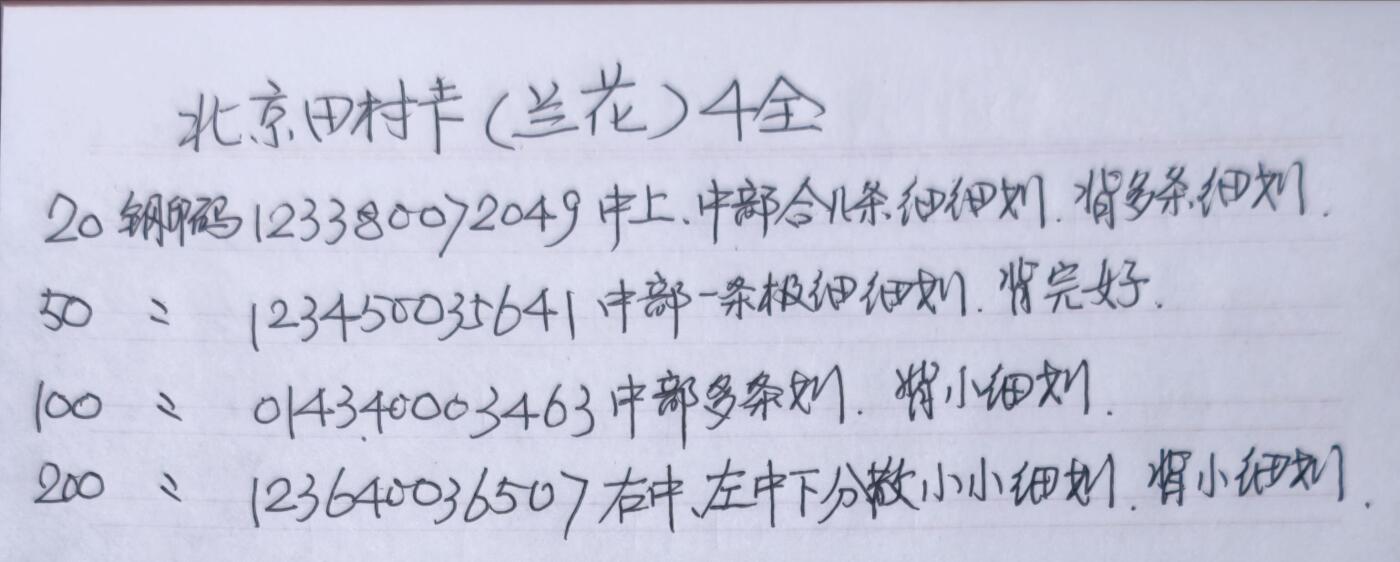 北京田村卡(兰花)4全
20 钢印码123380072049中上、中部合几条细细划.背多条细划.
50 〃 123450035641中部一条极细细划.背完好.
100 〃 014340003463中部多条划.背小细划.
200 〃 123640036507右中、左中下分散小小细划.背小细划.